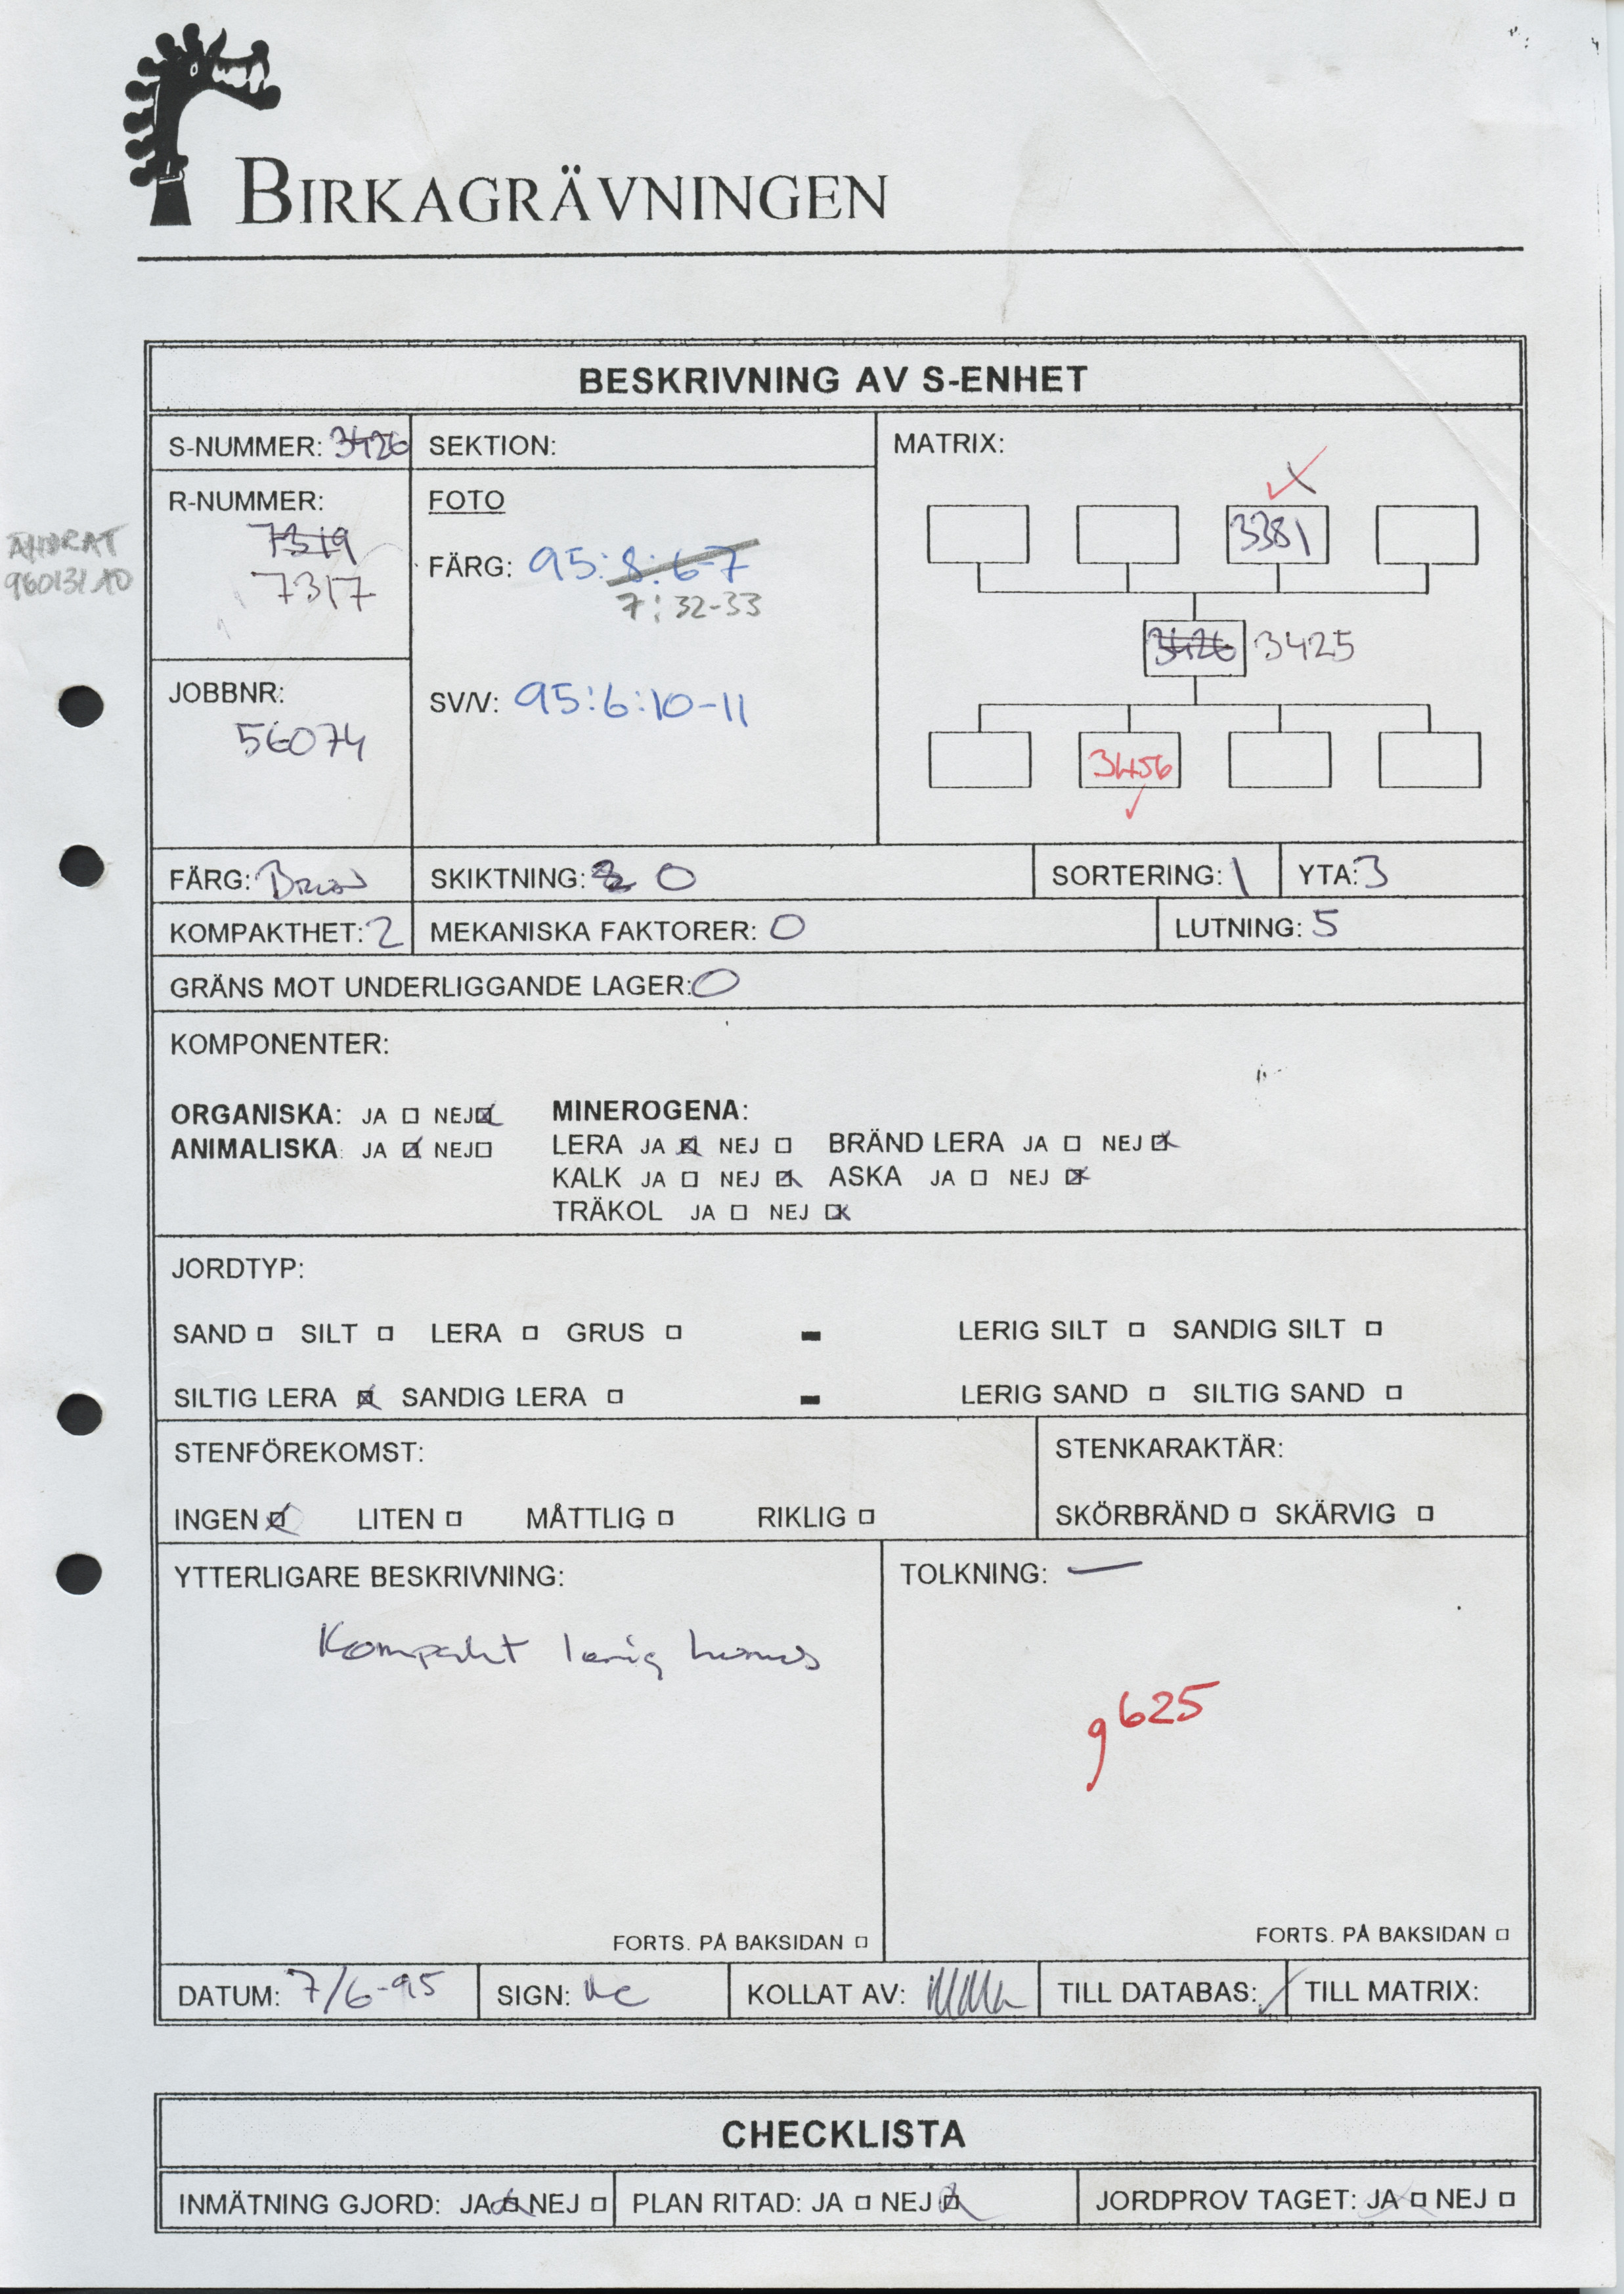 BIRKAGRÄVNINGEN
BESKRIVNING AV S-ENHET
S-NUMMER: 3426
SEKTION:
MATRIX:
R-NUMMER:
7319
7317
ÄNDRAT
960131
FOTO
FÄRG: 95:8:6-7
7:32-33
SV/V: 95:6:10-11
JOBBNR:
56074
3381
3426 3425
3456
FÄRG: Brun
SKIKTNING: 0
SORTERING: 1
YTA: 3
KOMPAKTHET: 2
MEKANISKA FAKTORER: 0
LUTNING: 5
GRÄNS MOT UNDERLIGGANDE LAGER: 0
KOMPONENTER:
ORGANISKA: JA NEJ
MINEROGENA:
ANIMALISKA: JA NEJ
LERA JA NEJ BRÄND LERA JA NEJ
KALK JA NEJ ASKA JA NEJ
TRÄKOL JA NEJ
JORDTYP:
SAND SILT LERA GRUS - LERIG SILT SANDIG SILT
SILTIG LERA SANDIG LERA - LERIG SAND SILTIG SAND
STENFÖREKOMST:
STENKARAKTÄR:
INGEN LITEN MÅTTLIG RIKLIG
SKÖRBRÄND SKÄRVIG
YTTERLIGARE BESKRIVNING:
Kompakt lerig humus
TOLKNING: —
g625
FORTS. PÅ BAKSIDAN
FORTS. PÅ BAKSIDAN
DATUM: 7/6-95
SIGN:
KOLLAT AV:
TILL DATABAS:
TILL MATRIX:
CHECKLISTA
INMÄTNING GJORD: JA NEJ
PLAN RITAD: JA NEJ
JORDPROV TAGET: JA NEJ